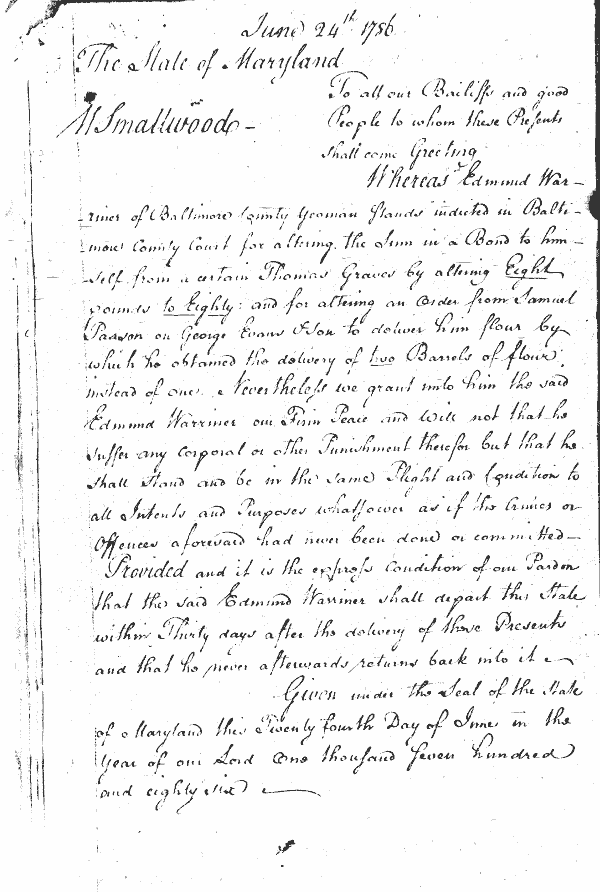 June 24th 1786
The State of Maryland
To all our Bailiffs and good
W Smallwood -
People to whom these Presents
shall come Greeting
Whereas Edmund War-
-riner of Baltimore County Yeoman stands indicted in Balti-
-more County Court for altering the Sum in a Bond to him-
-self from a certain Thomas Graves by altering Eight
pounds to Eighty: and for altering an order from Samuel
Pawson on George Evans & Son to deliver him flour by
which he obtained the delivery of two Barrels of flour
instead of one. Nevertheless we grant unto him the said
Edmund Warriner our Firm Peace and Will not that he
suffer any corporal or other Punishment therefor but that he
shall Stand and be in the same Plight and Condition to
all Intents and Purposes whatsoever as if the Crimes or
Offences aforesaid had never been done or committed -
Provided and it is the express Condition of our Pardon
that the said Edmund Warriner shall depart this State
within Thirty days after the delivery of these Presents
and that he never afterwards returns back into it
Given under the Seal of the State
of Maryland this Twenty fourth Day of June in the
Year of our Lord One thousand seven hundred
and eighty six